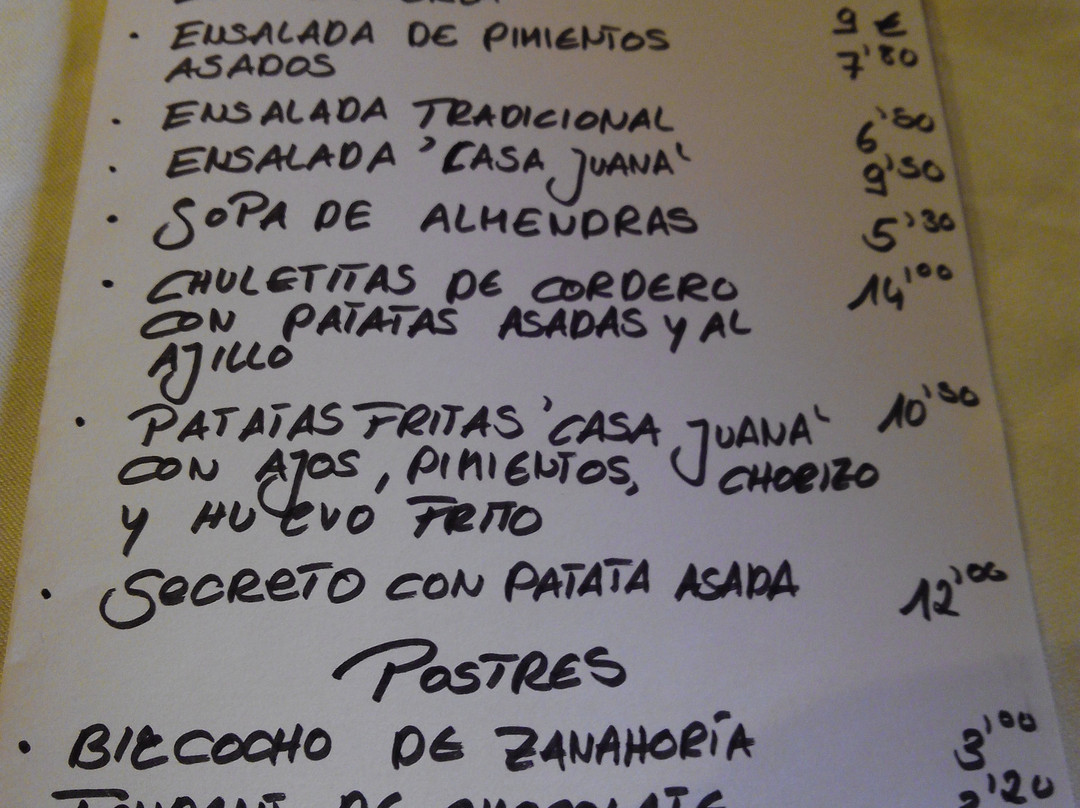 9 €
· ENSALADA DE PIMIENTOS 7'80
ASADOS
· ENSALADA TRADICIONAL 6'50
· ENSALADA 'CASA JUANA' 9'50
· SOPA DE ALMENDRAS 5'30
· CHULETITAS DE CORDERO 14'00
CON PATATAS ASADAS Y AL
AJILLO
· PATATAS FRITAS 'CASA JUANA' 10'50
CON AJOS, PIMIENTOS, CHORIZO
Y HUEVO FRITO
· SECRETO CON PATATA ASADA 12'00
POSTRES
· BIZCOCHO DE ZANAHORÍA 3'00
DE CHOCOLATE